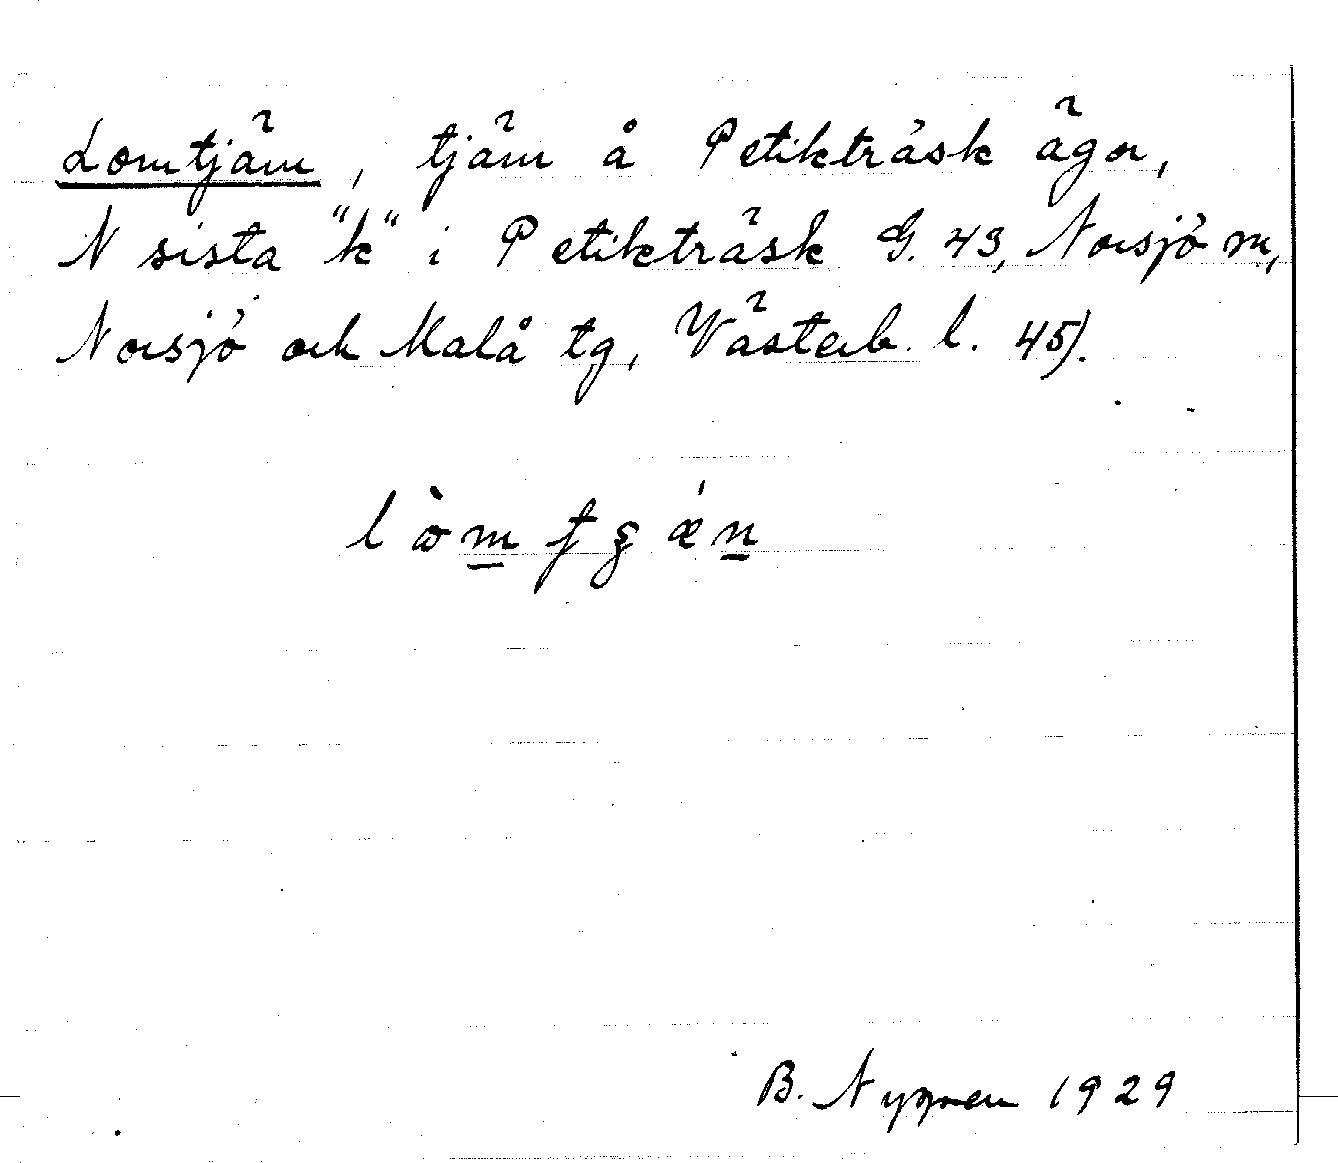 Lomtjäm, tjäm å Petikträsk ägor,
N sista "k" i Petikträsk G. 43, Norsjö sn,
Norsjö och Malå tg, Västerb. l. 45).
B. Nygren 1929